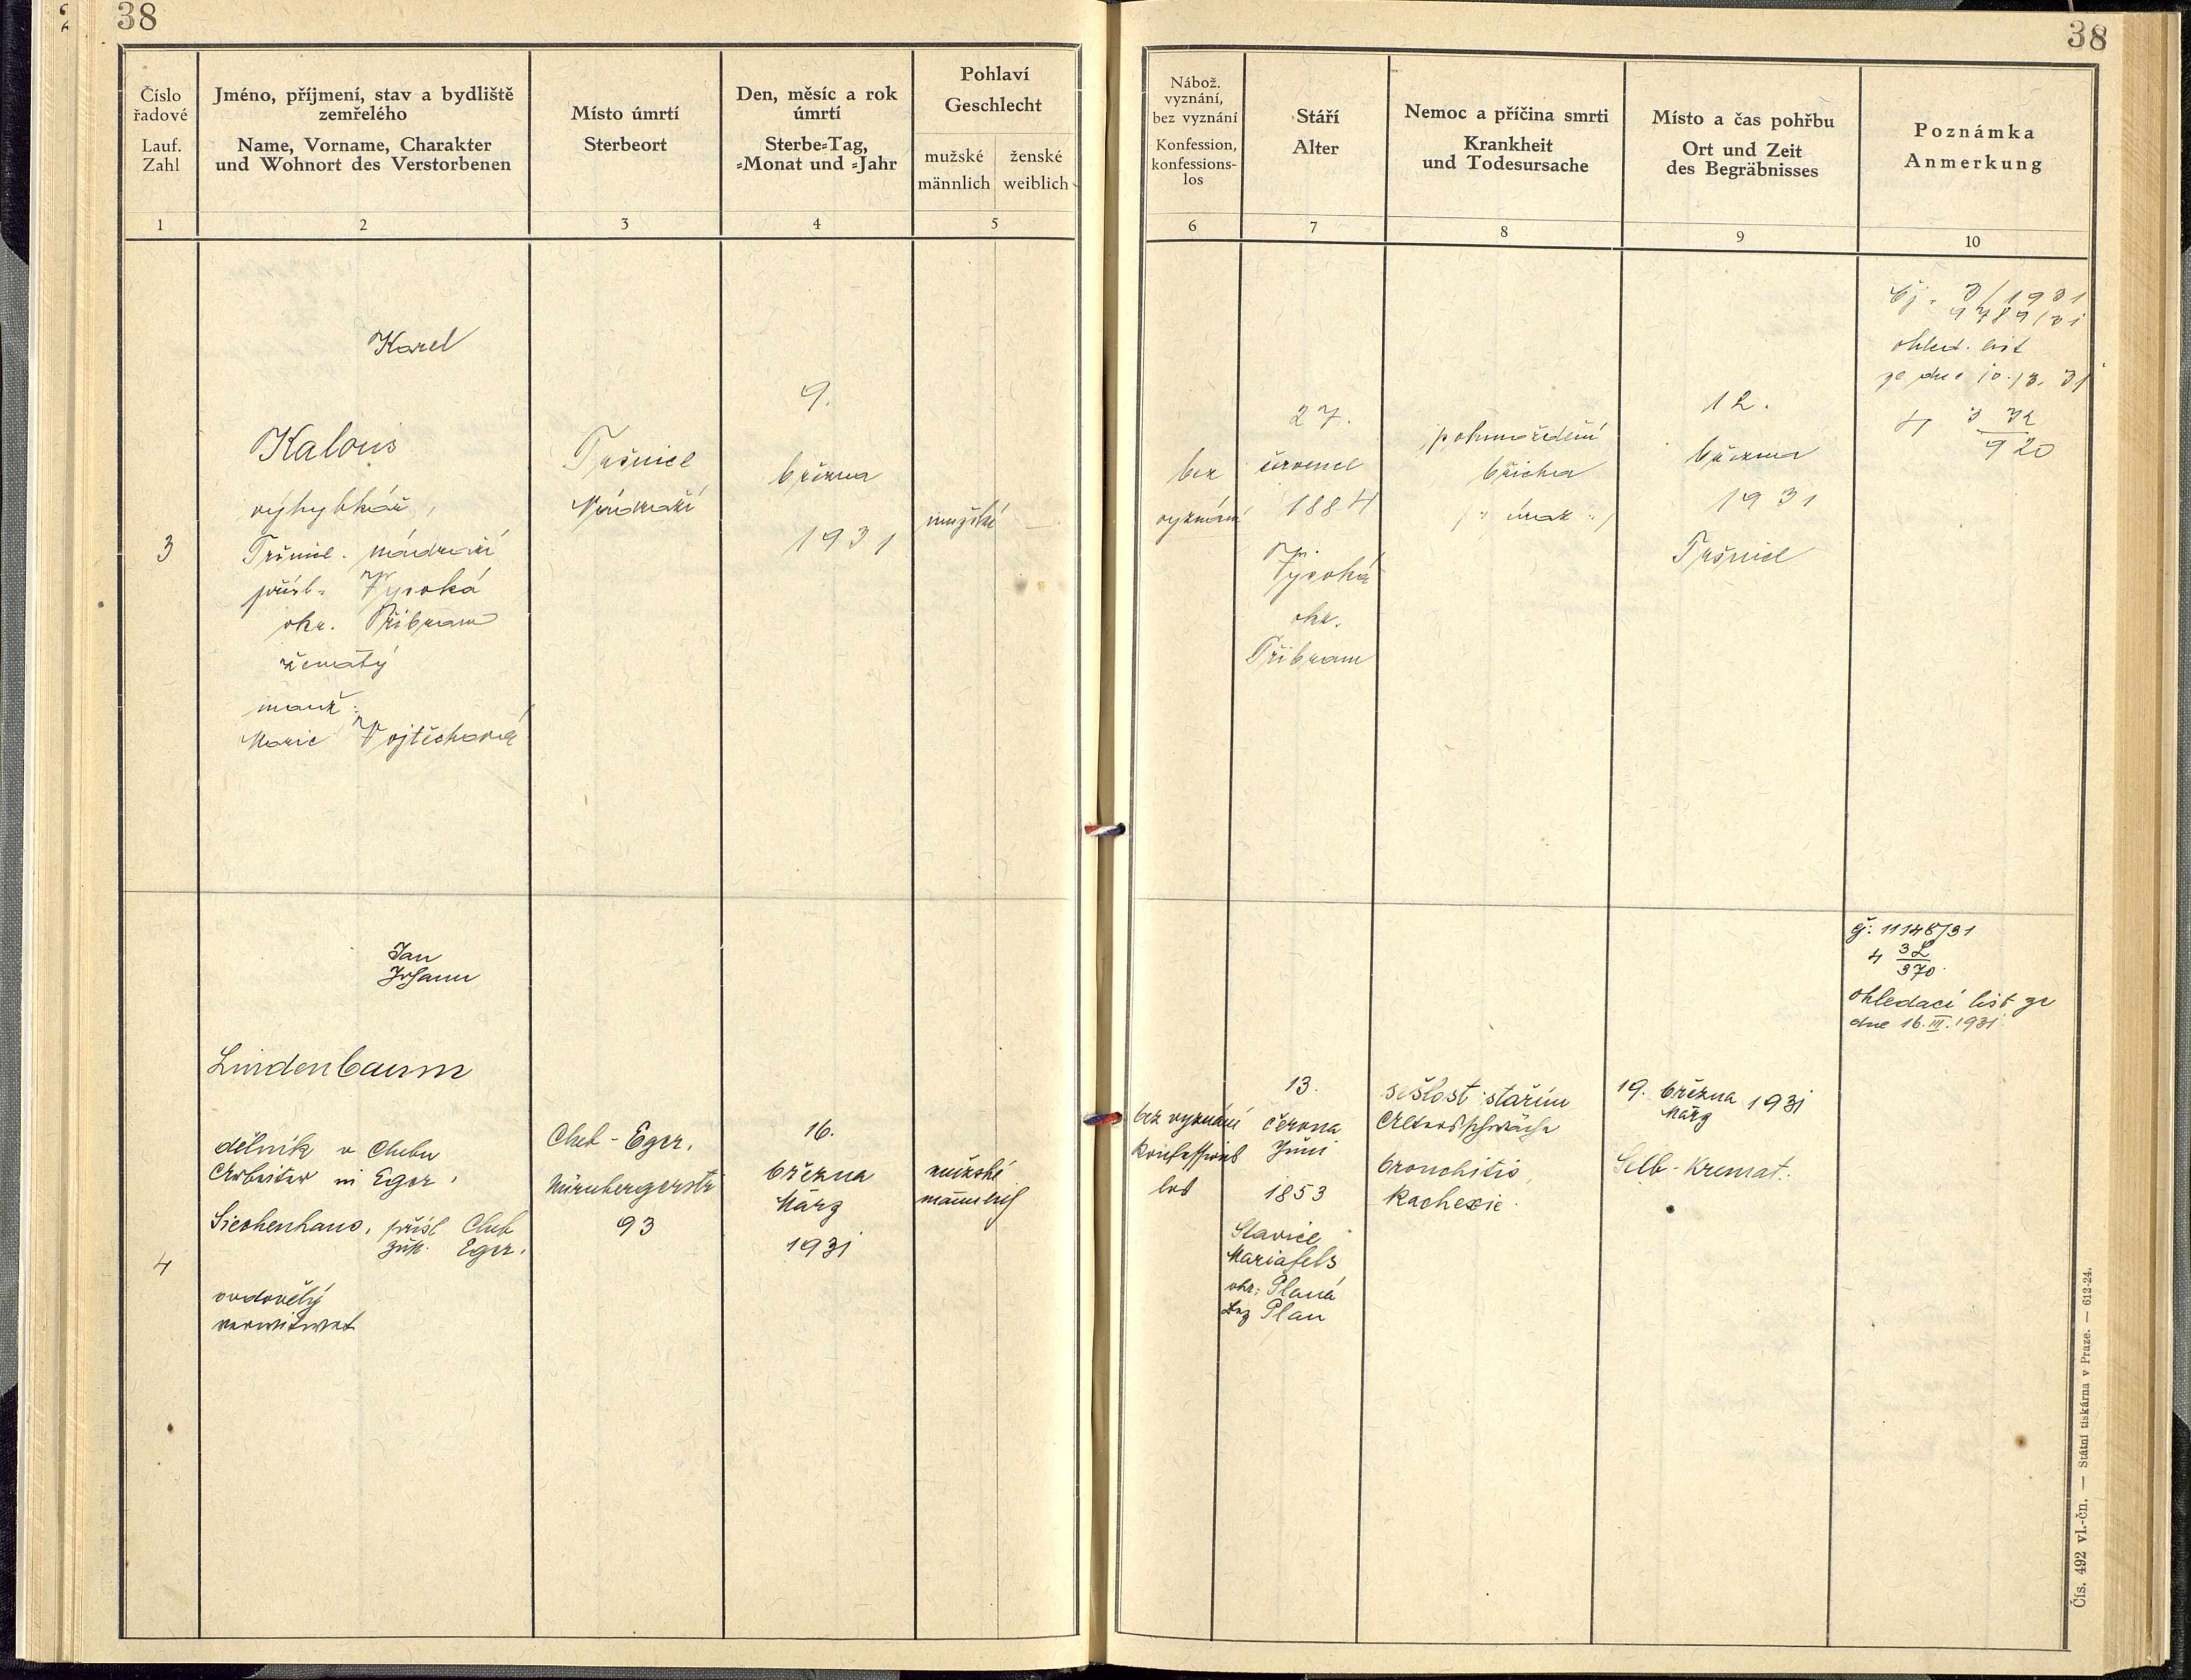 38
38
Číslo řadové
Lauf. Zahl
1
Jméno, příjmení, stav a bydliště
zemřelého
Name, Vorname, Charakter
und Wohnort des Verstorbenen
2
Místo úmrtí
Sterbeort
3
Den, měsíc a rok
úmrtí
Sterbe=Tag,
=Monat und =Jahr
4
Pohlaví
Geschlecht
mužské
männlich
ženské
weiblich
5
Nábož.
vyznání,
bez vyznání
Konfession,
konfessions-
los
6
Stáří
Alter
7
Nemoc a příčina smrti
Krankheit
und Todesursache
8
Místo a čas pohřbu
Ort und Zeit
des Begräbnisses
9
Poznámka
Anmerkung
10
3
Karel
Kalous
výhybkář,
Tršnice. nádraží
přísl. Vysoká
okr. Příbram
ženatý
manž:
Marie Vojtěchová
Tršnice
Nádraží
9.
března
1931
mužské
bez
vyznání
27.
července
1884
Vysoká
okr.
Příbram
pohmoždění
břicha
/: úraz :/
12.
března
1931
Tršnice
čj. 3/1931
ohled. list
ze dne 10./3. 31
920
4
Jan
Johann
Lindenbaum
dělník v Chebu
Arbeiter in Eger,
Siechenhaus, přísl Cheb
zust. Eger.
ovdovělý
verwitwet
Cheb - Eger,
Nürnbergerstr
93
16.
března
März
1931
mužské
männlich
bez vyznání
Konfessions
los
13.
června
Juni
1853
Slavice
Mariafels
okr: Planá
Bez Plan
sešlost stářím
Altersschwäche
bronchitis,
Kachexie.
19. března 1931
März
Selb - Kremat.
čj: 11148/31
4 3L
370
Ohledací list ze
dne 16.III.1931.
Čís. 492 vl.-čn. — Státní tiskárna v Praze. — 612-24.